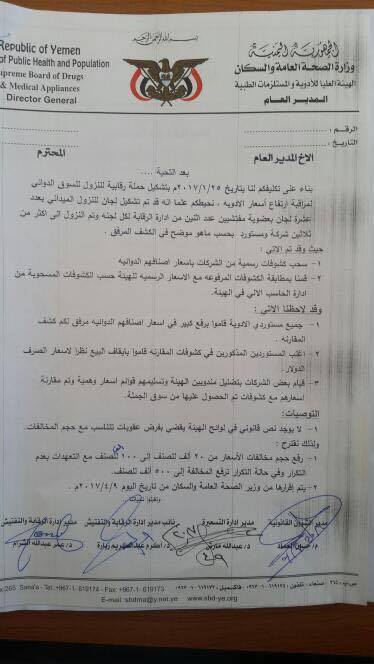 بسم الله الرحمن الرحيم
Republic of Yemen
of Public Health and Population
Supreme Board of Drugs
& Medical Appliances
Director General
الجمهورية اليمنية
وزارة الصحة العامة والسكان
الهيئة العليا للأدوية والمستلزمات الطبية
المدير العام
الرقم :
التاريخ :
الاخ المدير العام المحترم
بعد التحية ....
بناء على تكليفكم لنا بتاريخ ٢٠١٧/١/٢٥م بتشكيل حملة رقابية للنزول للسوق الدوائي
لمراقبة أرتفاع أسعار الادوية ، نحيطكم علما انه قد تم تشكيل لجان للنزول الميداني بعدد
عشرة لجان بعضوية مفتشيين عدد اثنين من ادارة الرقابة لكل لجنه وتم النزول الى اكثر من
ثلاثين شركة ومستورد بحسب ماهو موضح في الكشف المرفق .
حيث وقد تم الاتي :
١ - سحب كشوفات رسمية من الشركات باسعار اصنافهم الدوائيه
٢ - قمنا بمطابقة الكشوفات المرفوعه مع الاسعار الرسميه للهيئة حسب الكشوفات المسحوبة من
ادارة الحاسب الالي في الهيئة.
وقد لاحظنا الاتي :
١ - جميع مستوردي الادوية قاموا برفع كبير في اسعار اصنافهم الدوائيه مرفق لكم كشف
المقارنه .
٢ - اغلب المستوردين المذكورين في كشوفات المقارنه قاموا بايقاف البيع نظرا لاسعار الصرف
الدولار.
٣ - قيام بعض الشركات بتضليل مندوبين الهيئة وتسليمهم قوائم اسعار وهمية وتم مقارنة
اسعارهم مع كشوفات تم الحصول عليها من سوق الجملة.
التوصيات:
١ - لا يوجد نص قانوني في لوائح الهيئة يقضي بفرض عقوبات تتناسب مع حجم المخالفات.
ولذلك نقترح :
١ - رفع حجم مخالفات الأسعار من ٢٠ ألف للصنف إلى ١٠٠ الف للصنف مع التعهدات بعدم
التكرار وفي حالة التكرار ترفع المخالفة إلى ٥٠٠ ألف للصنف.
٢ - يتم إقرارها من وزير الصحة العامة والسكان من تاريخ اليوم ٢٠١٧/٤/٩م .
مدير الشؤن القانونية
مدير ادارة التسعيرة
نائب مدير ادارة الرقابة والتفتيش
مدير ادارة الرقابة والتفتيش
د/ عبدالله
د/ أكرم عبدالكريم زبارة
د/ عمر عبدالله
:265 Sana'a - Tel: +967-1- 619174 - Fax: +967-1- 619173
E-mail :sbdma@y.net.ye www.sbd-ye.org